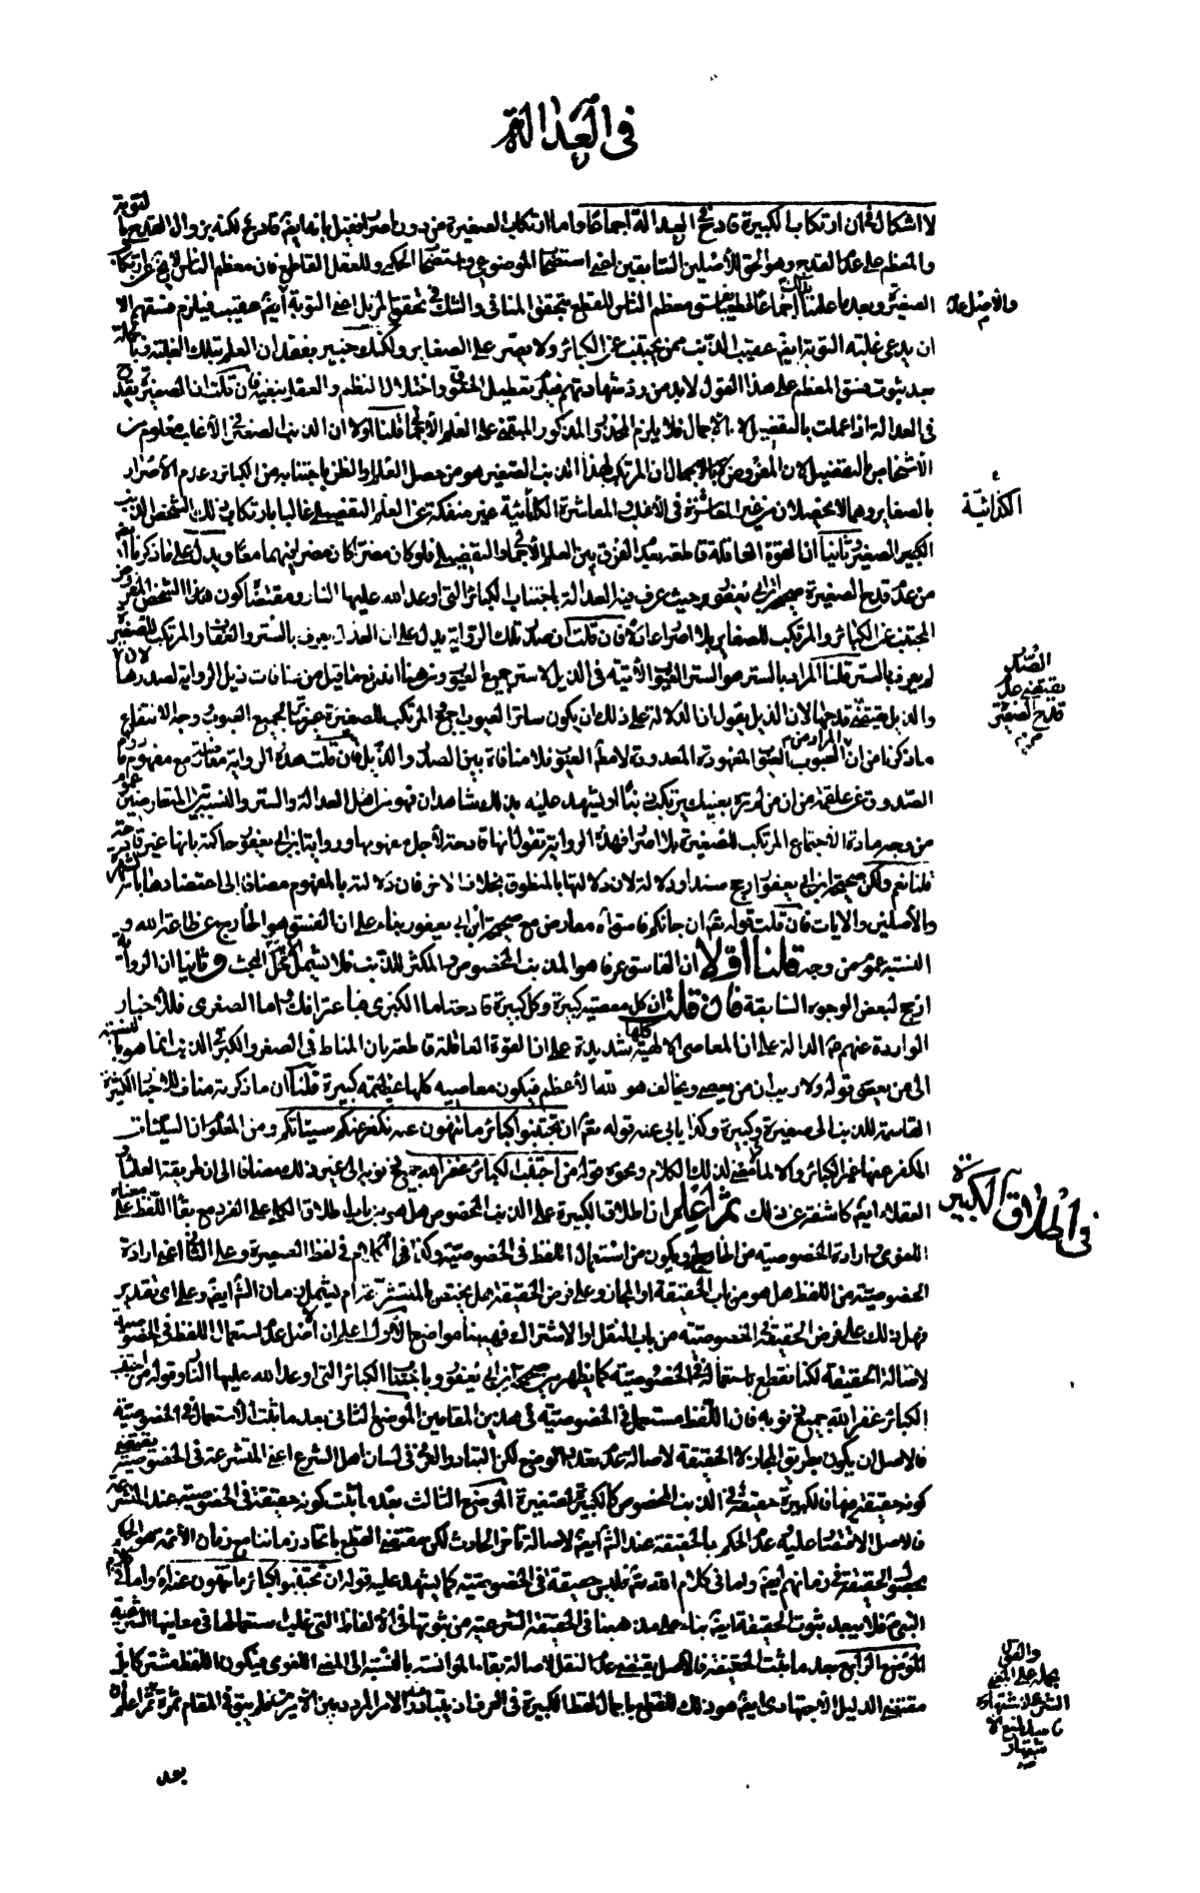 في العدالة
لا اشكال في ان ارتكاب الكبيرة قادح في العدالة اجماعا واما ارتكاب الصغيرة من دون اصرار فقيل بانه ايضا قادح لكنه يزول القدح بالتوبة
والمعظم على عدم القدح وهو الحق للأصلين السابقين اعني استصحاب الموضوعي واستصحاب الحكمي وللعقل القاطع فان معظم الناس لا يخ عن ارتكاب
والأصل عدمه
الصغيرة وبعد ما علمنا اجماعا قطعيا بفسق معظم الناس للقطع بتحقق المنافي والشك في تحقق المزيل اعني التوبة ايضا عقيب فيلزم فسقهم الا
ان يدعى غلبة التوبة ايضا عقيب الذنب ممن يجتنب عن الكبائر ولا يصر على الصغاير ولكنك خبير بفقدان العلم بتلك الغلبة وبالجملة
بعد ثبوت فسق المعظم على هذا القول لابد من رد شهادتهم فيلزم تعطيل الحقوق واختلال النظم والعقل ينفيه فان قلت ان الصغيرة يقدح
في العدالة اذا علمت بالتفصيل لا بالاجمال فلا يلزم المحذور المذكور المبتنى على العلم الاجمالي قلنا اولا ان الذنب الصغير في الأغلب معلوم من
الأشخاص بالتفصيل لان المفروض كما بالاجمال ان المرتكب لهذا الذنب الصغير هو من حصل العلم او الظن باجتنابه من الكبائر وعدم الأصرار
الكذائية
بالصغاير وهما لا يحصلان من غير المعاشرة في الأغلب والمعاشرة الكذائية غير منفكة عن العلم التفصيلي غالبا بارتكاب ذلك الشخص الذنب
الكبير الصغير وثانيا ان القوة العاقلة قاطعة بعدم الفرق بين العلم الاجمالي والتفصيلي فلو كان مضرا كان مضرا فيهما معا ويدل على ما ذكرنا ايضا
من عدم قدح الصغيرة صحيحة ابن ابي يعفور حيث عرف فيها العدالة باجتناب الكبائر التي اوعد الله عليها النار ومقتضاه كون هذا الشخص
المجتنب عن الكبائر والمرتكب للصغاير بلا اصرار عادلا فان قلت ان صدر تلك الرواية يدل على ان العدالة يعرف بالستر والعفاف والمرتكب للصغيرة
الصدر يقتضي عدم قدح الصغيرة
لم يعرف بالستر قلنا المراد بالستر هو الستر العيوب الآتية في الذيل لا ستر جميع العيوب ومن هنا اندفع ما قيل من منافات ذيل الرواية لصدرها لان
والذيل يقتضي قدحها لان الذيل يقول ان الدلالة على ذلك ان يكون ساترا لعيوبه اجمع المرتكب للصغيرة غير ساتر لجميع العيوب وجه الاندفاع
ما ذكرنا من ان المراد من العيوب العيوب المعهودة المعدودة لا مطلق العيوب فلا منافاة بين الصدر والذيل فان قلت هذه الرواية معارضة مع مفهوم
فمن لم تره بعينك يرتكب ذنبا او لم يشهد عليه بذلك شاهدان فهو من اهل العدالة والستر والنسبة بين المتعارضين عموم
من وجه مادة الاجتماع المرتكب للصغيرة بلا اصرار فهذه الرواية تقول انها قادحة لأجل مفهومها ورواية ابن ابي يعفور حاكمة بانها غير قادحة
قلنا نعم ولكن صحيحة ابن ابي يعفور ارجح سندا ودلالة لان دلالتها بالمنطوق بخلاف الاخر فان دلالته بالمفهوم مضافا الى اعتضادها بالشهرة
والأصلين والايات فان قلت قوله تعم ان جائكم فاسق اه معارض مع صحيحة ابن ابي يعفور بناء على ان الفسق هو الخارج عن طاعة الله و
النسبة عموم من وجه قلنا اولا ان الفاسق عرفا هو المذنب المخصوص والمكثر للذنب فلا يشمل محل البحث وثانيا ان الرواية
ارجح لبعض الوجوه السابقة فان قلت ان كل معصية كبيرة وكل كبيرة قادحة اما الكبرى فباعترافك واما الصغرى فللأخبار
الواردة عنهم الدالة على ان المعاصي كلها شديدة على ان القوة العاقلة قاطعة بان المناط في الصغر والكبر الذنب انما هو بالنسبة
الى من يعصى قوله ولا ريب ان من يعصي ويخالف هو لله الأعظم فيكون معاصيه كلها عظيمة كبيرة قلنا ان ما ذكرته مناف للاخبار الكثيرة
القاسمة للذنب الى صغيرة وكبيرة وكذا يابى عنه قوله تعم ان تجتنبوا كبائر ما تنهون عنه نكفر عنكم سيئاتكم ومن المعلوم ان السيئات
المكفر عنها غير الكبائر والا لما معنى لذلك الكلام ونحوه قوله من اجتنب الكبائر غفر الله جميع ذنوبه الى غير ذلك مضافا الى ان طريقة العلماء و
في اطلاق الكبيرة
العقلاء ايضا كاشفة عن ذلك ثم اعلم ان اطلاق الكبيرة على الذنب المخصوص هل هو من باب اطلاق الكلي على الفرد مع بقاء اللفظ على معناه
اللغوي وارادة الخصوصية من الخارج او يكون من استعمال اللفظ في الخصوصية وكذا في لفظ الصغيرة وعلى الثاني اعني ارادة
الخصوصية من اللفظ هل هو من باب الحقيقة او المجاز وعلى فرض الحقيقة هل يختص بالمتشرعة ام ليشمل زمان الش ايضا وعلى اي تقدير
فهل ذلك على فرض الحقيقة في الخصوصية من باب النقل او الاشتراك فههنا مواضع الأول اعلم ان الأصل عدم استعمال اللفظ في الخصوصية
لاصالة الحقيقة لكنا نقطع باستعماله في الخصوصية كما يظهر من صحيحة ابن ابي يعفور وباجتناب الكبائر التي اوعد الله عليها النار وقوله من اجتنب
الكبائر غفر الله جميع ذنوبه فان اللفظ مستعمل في الخصوصية في هذين المقامين الموضع الثاني بعد ما ثبت الاستعمال في الخصوصية
فالاصل ان يكون بطريق المجاز لا الحقيقة لاصالة عدم تعدد الوضع لكن التبادر العرفي في لسان اهل الشرع اعني المتشرعة في الخصوصية يقتضي
كونه حقيقة فيها فان الكبيرة حقيقة في الذنب المخصوص كالكبير والصغيرة الموضع الثالث بعد ما ثبت كونه حقيقة في الخصوصية عند المتشرعة
فالاصل الاقتصار عليه وعدم الحكم بالحقيقة عند الش ايضا لاصالة تأخر الحادث لكن مقتضى القطع باتحاد زماننا مع زمان الأئمة هو الحكم
بحصول الحقيقة في زمانهم ايضا واما في كلام الله تعم فليس حقيقة في الخصوصية كما يشهد عليه قوله ان تجتنبوا كبائر ما تنهون عنه اه واما في كلام
النبي فلا يبعد ثبوت الحقيقة ايضا بناء على مذهبنا في الحقيقة الشرعية من ثبوتها في الالفاظ التي غلب استعمالها في معانيها الشرعية
الموضع الرابع بعد ما ثبت الحقيقة فالأصل يقتضي عدم النقل لاصالة بقاء الموانسة بالنسبة الى المعنى اللغوي فيكون اللفظ مشتركا بل
والفرق بحمله على المعنى الشرعي لاشتهاره
مقتضى الدليل الأجتهادي ايضا هو ذلك للقطع باجمال لفظ الكبيرة في العرف اذ يتبادر الامر المردد بين الامرين فلم يبق في المقام ثمرة ثم اعلم ان
بعد